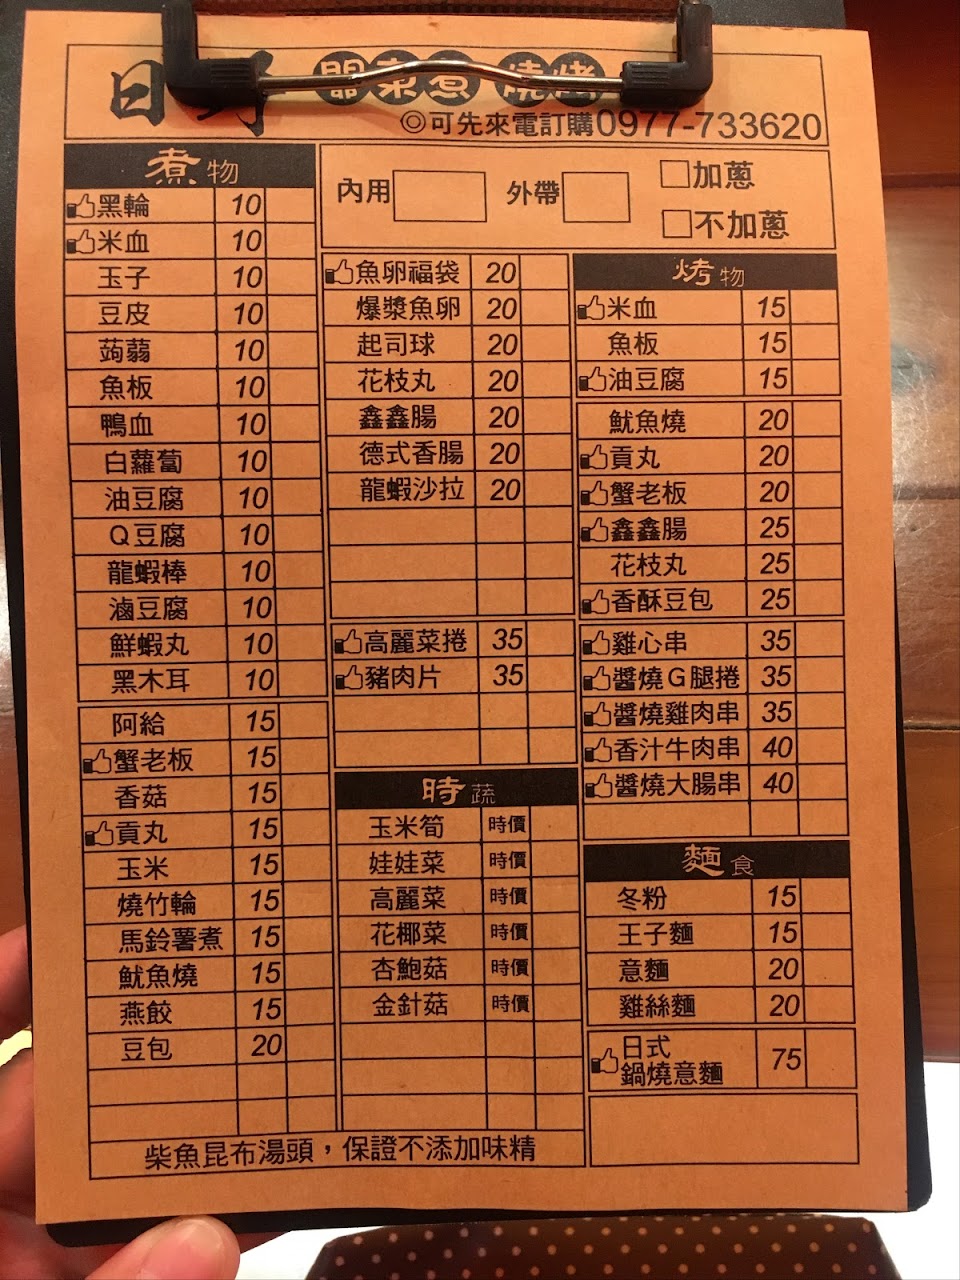 日野 關東煮 燒烤
◎可先來電訂購0977-733620
煮物
黑輪 10
米血 10
玉子 10
豆皮 10
蒟蒻 10
魚板 10
鴨血 10
白蘿蔔 10
油豆腐 10
Q豆腐 10
龍蝦棒 10
滷豆腐 10
鮮蝦丸 10
黑木耳 10
阿給 15
蟹老板 15
香菇 15
貢丸 15
玉米 15
燒竹輪 15
馬鈴薯煮 15
魷魚燒 15
燕餃 15
豆包 20
內用 外帶
□加蔥
□不加蔥
魚卵福袋 20
爆漿魚卵 20
起司球 20
花枝丸 20
鑫鑫腸 20
德式香腸 20
龍蝦沙拉 20
高麗菜捲 35
豬肉片 35
時蔬
玉米筍 時價
娃娃菜 時價
高麗菜 時價
花椰菜 時價
杏鮑菇 時價
金針菇 時價
烤物
米血 15
魚板 15
油豆腐 15
魷魚燒 20
貢丸 20
蟹老板 20
鑫鑫腸 25
花枝丸 25
香酥豆包 25
雞心串 35
醬燒G腿捲 35
醬燒雞肉串 35
香汁牛肉串 40
醬燒大腸串 40
麵食
冬粉 15
王子麵 15
意麵 20
雞絲麵 20
日式
鍋燒意麵 75
柴魚昆布湯頭，保證不添加味精